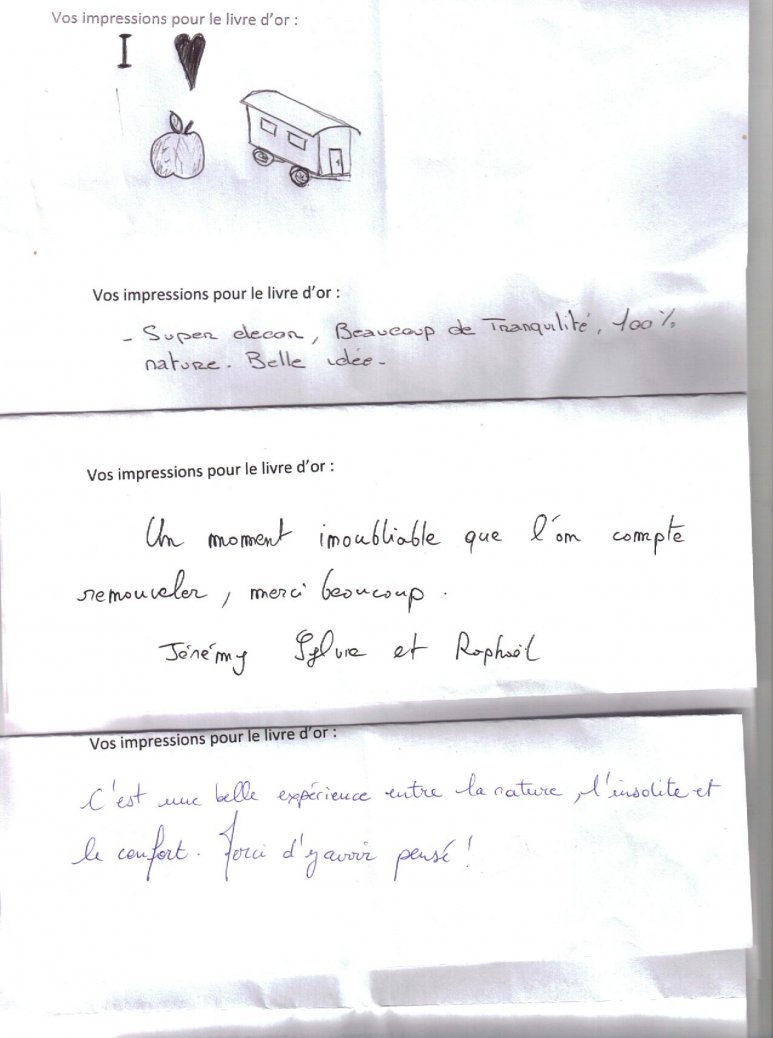 Vos impressions pour le livre d'or :
I
Vos impressions pour le livre d'or :
- Super decor, Beaucoup de Tranquilité, 100%
nature. Belle idée.
Vos impressions pour le livre d'or :
Un moment inoubliable que l'on compte
renouveler, merci beaucoup.
Jérémy Sylvie et Raphaël
Vos impressions pour le livre d'or :
C'est une belle expérience entre la nature, l'insolite et
le confort. Merci d'y avoir pensé !